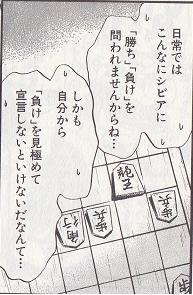 日常では
こんなにシビアに
「勝ち」「負け」を
問われませんからね…
しかも
自分から
「負け」を見極めて
宣言しないといけないだなんて…
龍王
歩兵
歩兵